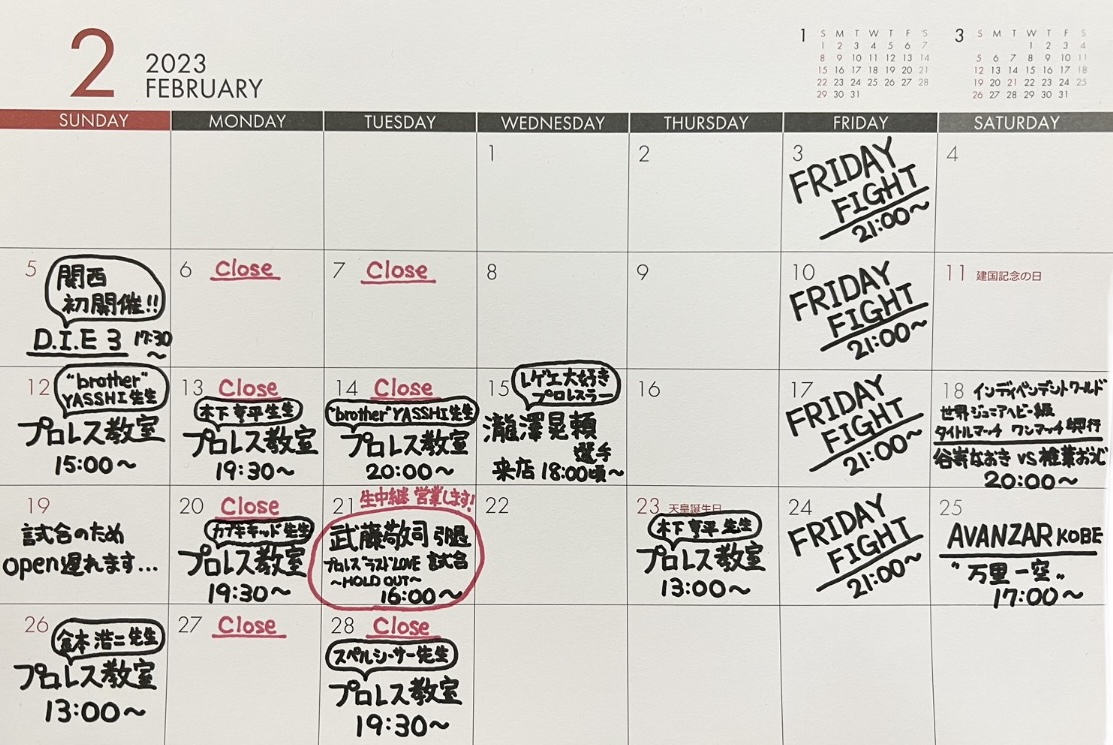 2 2023
FEBRUARY
1
S M T W T F S
1 2 3 4 5 6 7
8 9 10 11 12 13 14
15 16 17 18 19 20 21
22 23 24 25 26 27 28
29 30 31
3
S M T W T F S
1 2 3 4
5 6 7 8 9 10 11
12 13 14 15 16 17 18
19 20 21 22 23 24 25
26 27 28 29 30 31
SUNDAY MONDAY TUESDAY WEDNESDAY THURSDAY FRIDAY SATURDAY
1
2
3
FRIDAY
FIGHT
21:00〜
4
5
関西
初開催!!
D.I.E 3 17:30
〜
6 Close
7 Close
8
9
10
FRIDAY
FIGHT
21:00〜
11 建国記念の日
12
"brother"
YASSHI先生
プロレス教室
15:00〜
13 Close
木下亨平先生
プロレス教室
19:30〜
14 Close
"brother"YASSHI先生
プロレス教室
20:00〜
15
レゲエ大好き
プロレスラー
瀧澤晃頼
選手
来店 18:00頃〜
16
17
FRIDAY
FIGHT
21:00〜
18 インディペンデントワールド
世界ジュニアヘビー級
タイトルマッチ ワンマッチ興行
谷嵜なおき VS 椎葉おうじ
20:00〜
19
試合のため
open遅れます...
20 Close
カブキキッド先生
プロレス教室
19:30〜
21 生中継 営業します!
武藤敬司 引退
プロレス"ラスト"LOVE 試合
〜HOLD OUT〜
16:00〜
22
23 天皇誕生日
木下亨平 先生
プロレス教室
13:00〜
24
FRIDAY
FIGHT
21:00〜
25
AVANZAR KOBE
"万里一空"
17:00〜
26
金本浩二先生
プロレス教室
13:00〜
27 Close
28 Close
スペルシーサー先生
プロレス教室
19:30〜